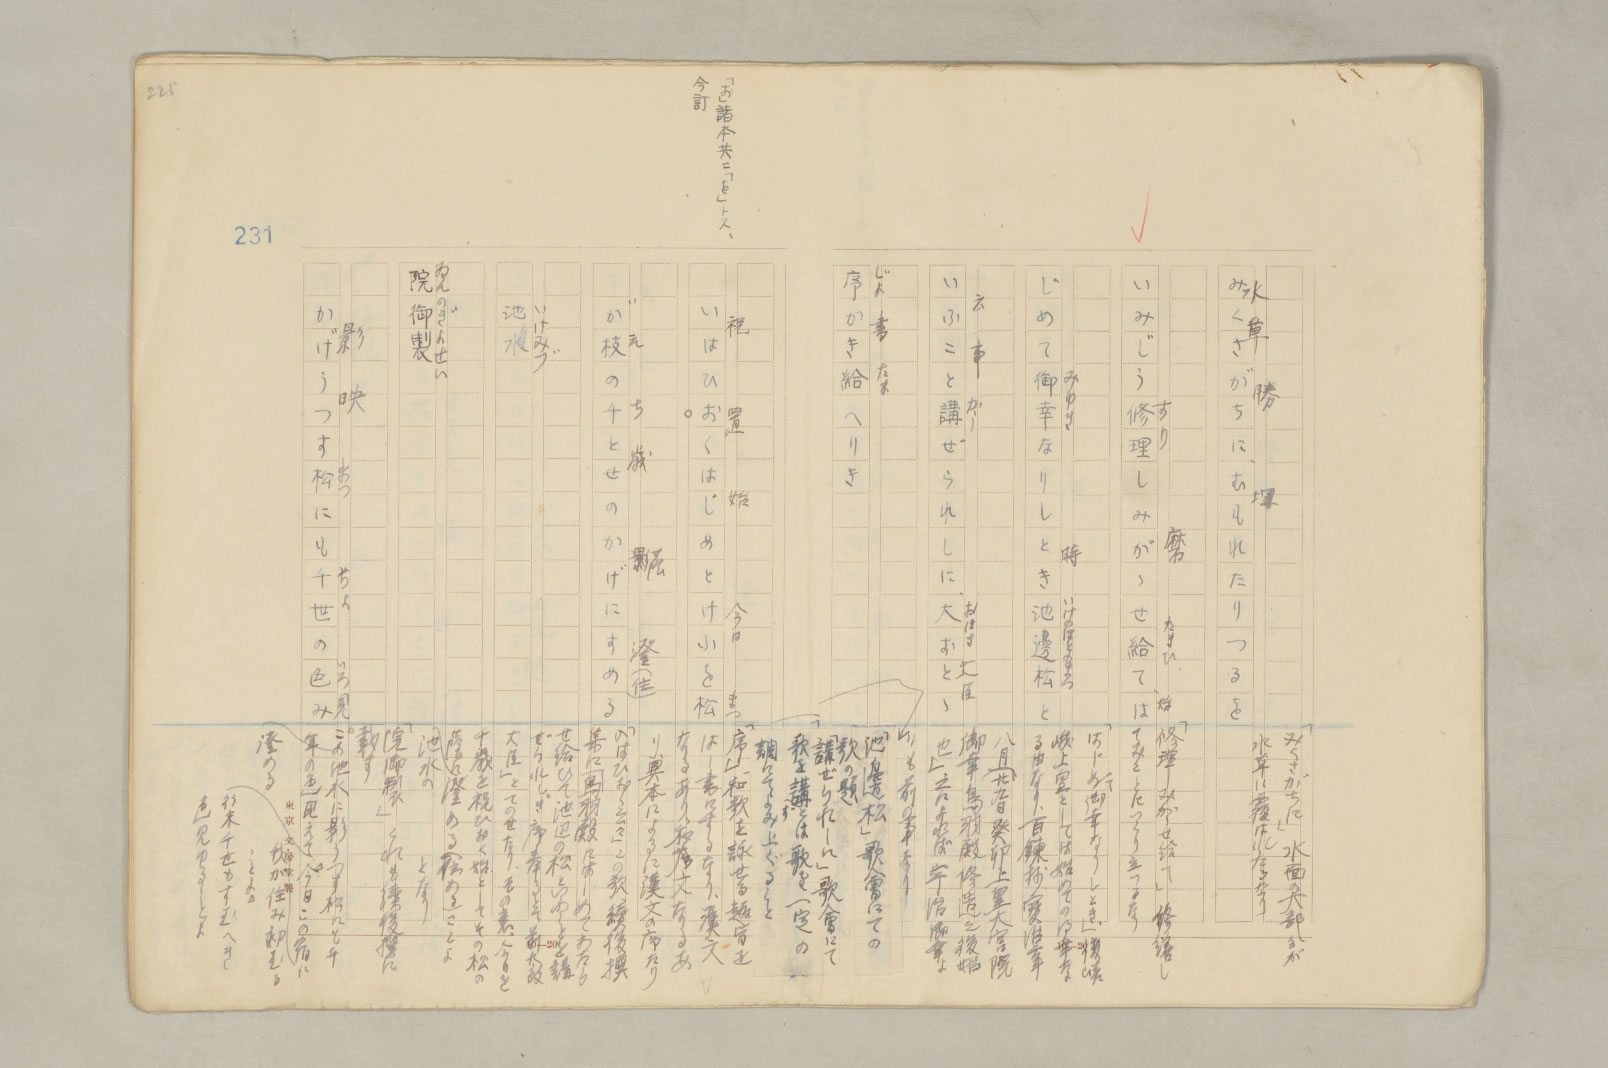 225
231
「お」諸本共ニ「を」トス、
今訂
水草 勝 埋
みくさがちに、むもれたりつるを
すり 磨 たまひ 始
いみじう修理しみがゝせ給て、は
みゆき 時 いけのほとりのまつ
じめて御幸なりしとき池邊松と
云事 がう おほす 大臣
いふこと講ぜられしに、大おとゝ
じよ 書 たま
序かき給へりき
祝 置 始 今日 まつ
いはひおくはじめとけふを松
え ち歳 影 澄(住)
が枝の千とせのかげにすめる
いけみづ
池水
ゐんのぎよせい
院御製
影 映 まつ ちよ いろ見
かげうつす松にも千世の色み
「みくさがちに」水面の大部分が
水草に覆はれたるなり
「修理しみがゝせ給て」修繕し
てみごとにつくり立つるなり
「はじめて御幸なりしとき」後嵯
峨上皇としては始めての御幸な
る由なり、百錬抄、寶治二年
八月廿九日癸卯上皇大宮院
御幸鳥羽殿修造之後始
也」
りも前の事なり
「池邊松」歌會にての
歌の題
「講ぜられしに」歌會にて
歌を講ずとは歌を一定の
調にてよみ上ぐること
「序」和歌を詠せる趣旨を
なるあり、和文なるあ
り、
「いはひおく云々」この歌、續後撰
集に「鳥羽殿にはじめてわたら
せ給ひて池辺の松といふことを講
ぜられしに序奉りて 前太政
大臣」とてのせたり その意、今日を
千歳を祝ひおく始としてその松の
蔭に澄める(松める)ことよ
池水の となり
「院御製」これも續後撰に
載す
この池水に影うつす松にも千
年の色見えて、今日この宿に
澄める
我が住み初むる
ことよ
行末千世もすむべき
色見ゆることよ
東京 文房堂製